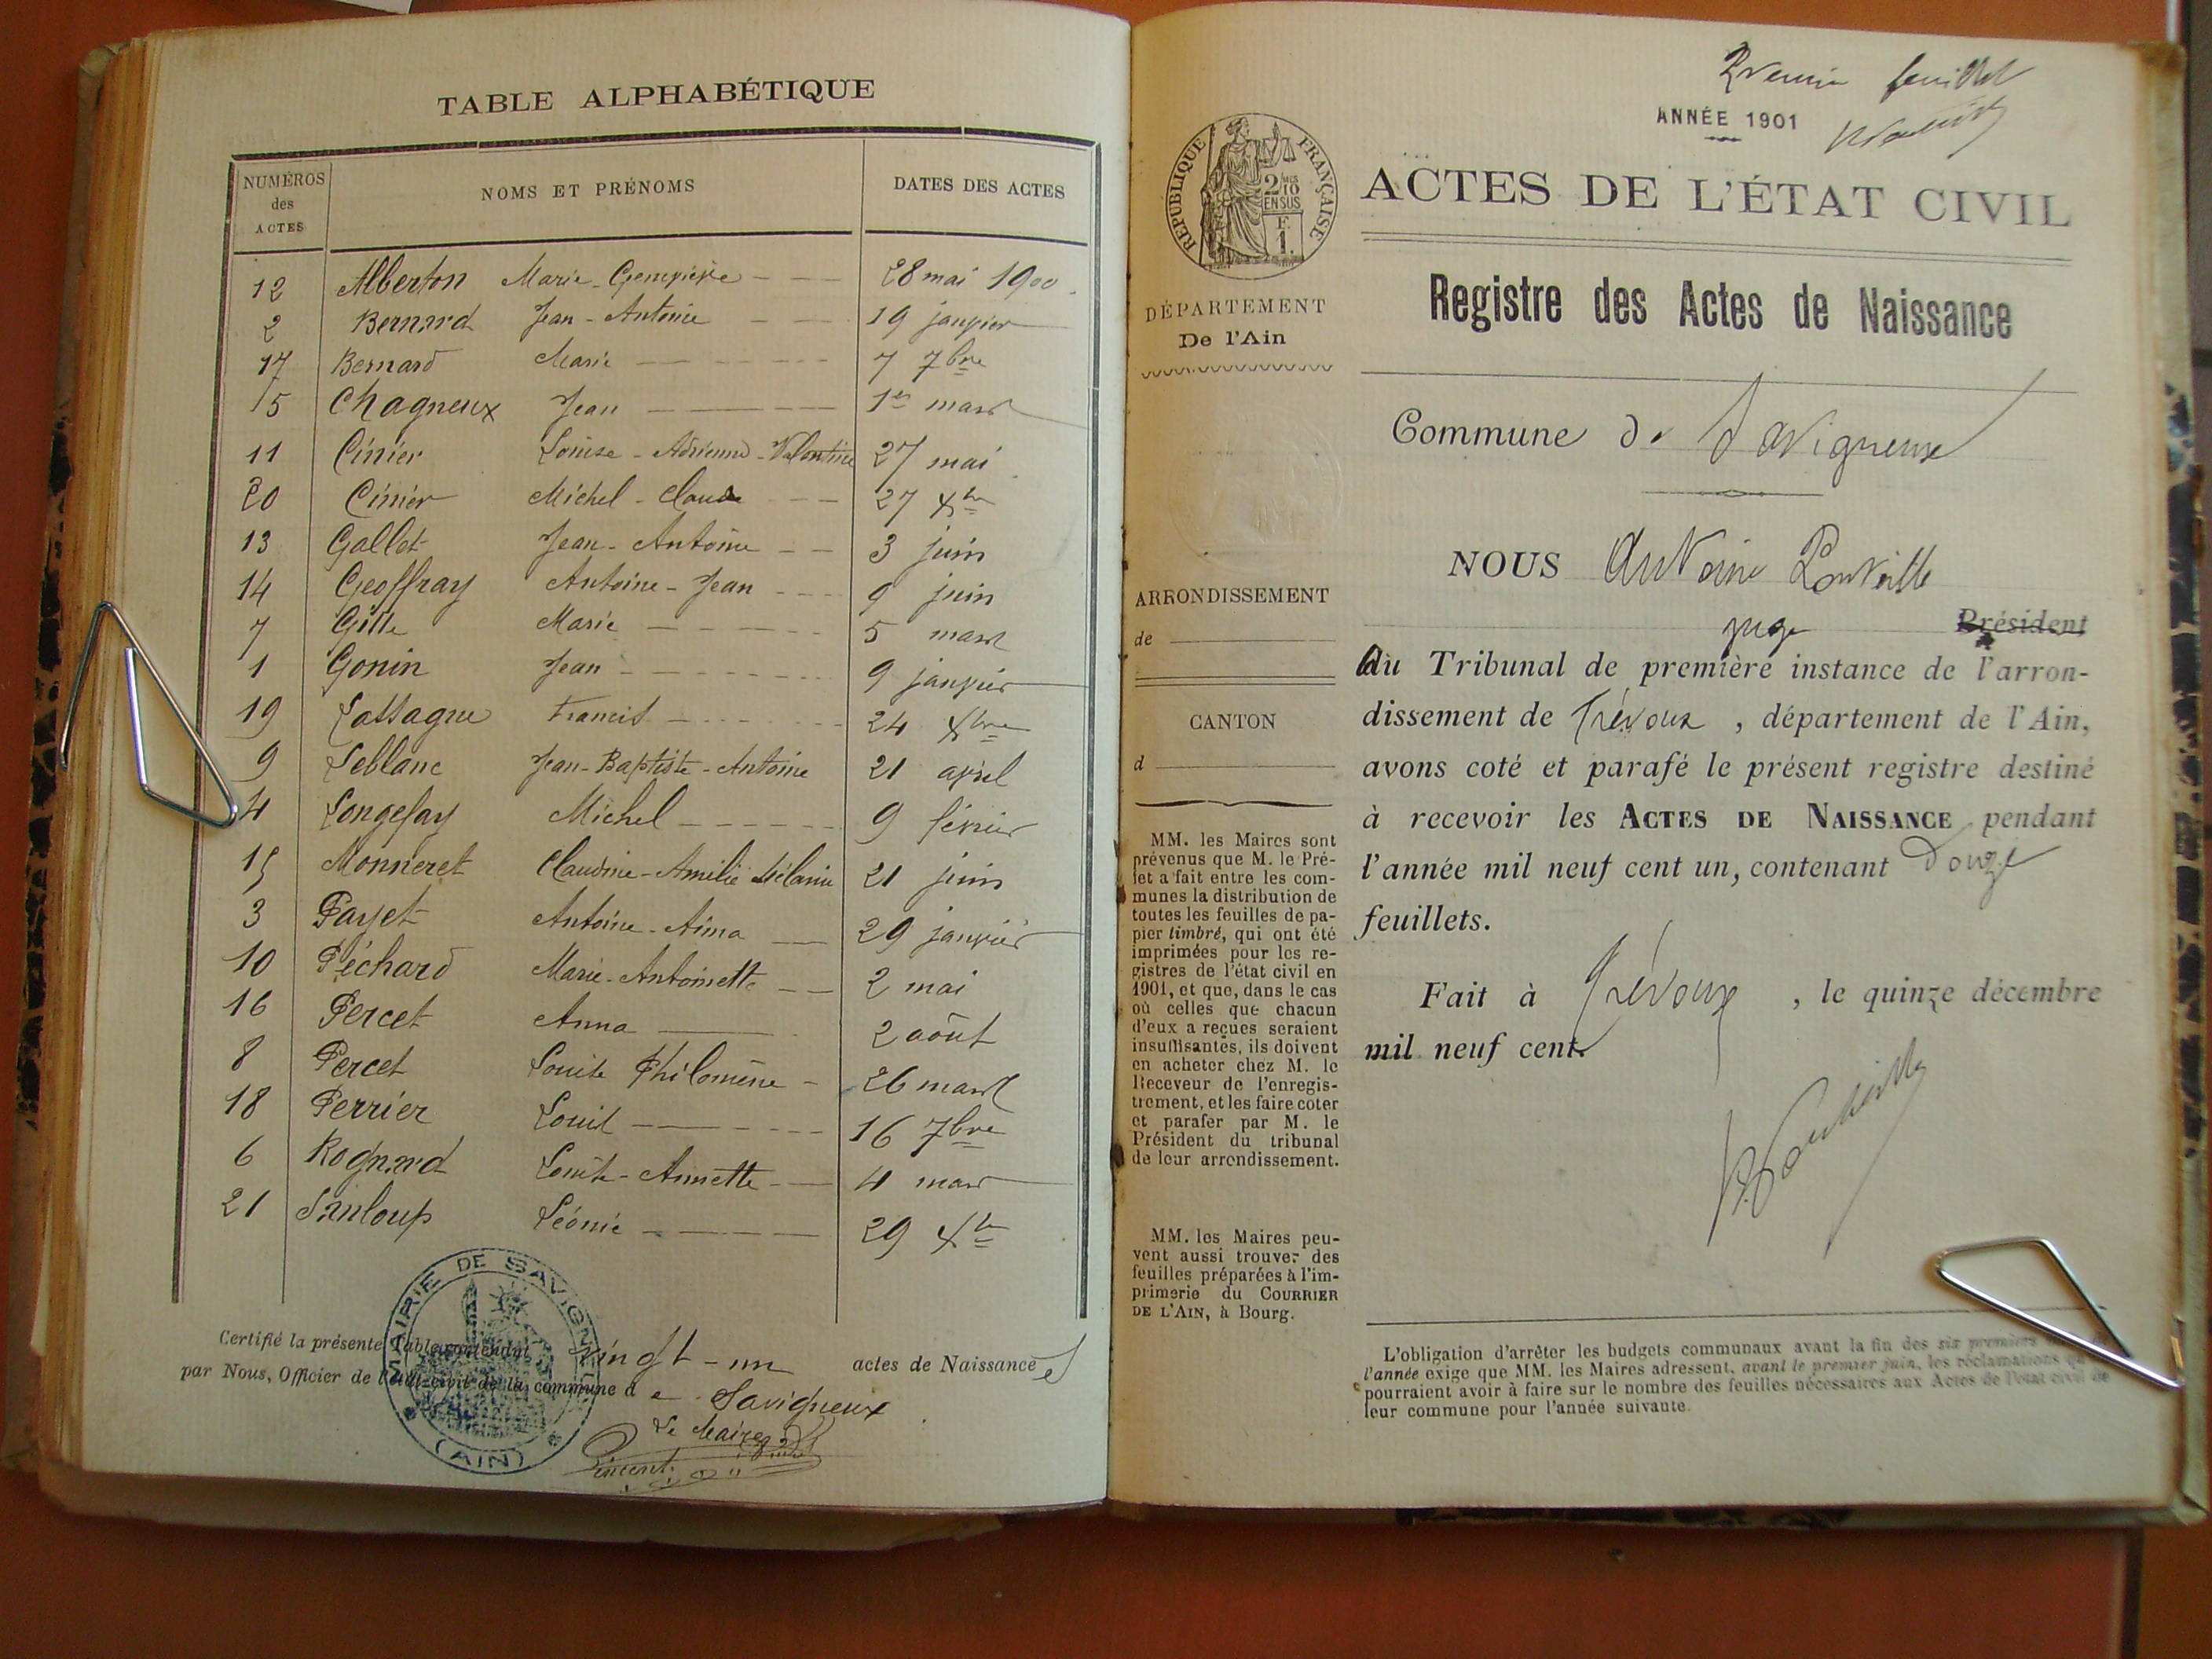 TABLE ALPHABÉTIQUE
NUMÉROS des ACTES
NOMS ET PRÉNOMS
DATES DES ACTES
12 Alberton Marie-Geneviève 28 mai 1900
2 Bernard Jean-Antoine 19 janvier
17 Bernard Marie 7 7bre
5 Chagneux Jean 1er mars
11 Cinier Louise-Adrienne-Valentine 27 mai
20 Cinier Michel-Claude 27 Xbre
13 Gallet Jean-Antoine 3 juin
14 Geoffray Antoine-Jean 9 juin
7 Gitte Marie 5 mars
1 Gonin Jean 9 janvier
19 Lassagne Francis 24 Xbre
9 Leblanc Jean-Baptiste-Antoine 21 avril
4 Longefay Michel 9 février
15 Monneret Claudine-Amélie Mélanie 21 juin
3 Payet Antoine-Aima 29 janvier
10 Péchard Marie-Antoinette 2 mai
16 Percet Anna 2 août
8 Percet Louise Philomène 26 mars
18 Perrier Louis 16 7bre
6 Rognard Louise-Annette 4 mars
21 Sanloup Léonie 29 Xbre
Certifié la présente Table contenant vingt-un actes de Naissances
par Nous, Officier de l'état-civil de la commune de Savigneux
Le Maire
Vincent
MAIRIE DE SAVIGNEUX
(AIN)
Premier feuillet
ANNÉE 1901
RÉPUBLIQUE FRANÇAISE
2 MES 10 EN SUS
F. 1.
ACTES DE L'ÉTAT CIVIL
Registre des Actes de Naissance
DÉPARTEMENT
De l'Ain
Commune de Savigneux
NOUS Antoine Pouteille
juge Président
du Tribunal de première instance de l'arron-
dissement de Trévoux, département de l'Ain,
avons coté et parafé le présent registre destiné
à recevoir les ACTES DE NAISSANCE pendant
l'année mil neuf cent un, contenant Douze
feuillets.
Fait à Trévoux, le quinze décembre
mil neuf cent.
ARRONDISSEMENT
de
CANTON
d
MM. les Maires sont
prévenus que M. le Pré-
fet a fait entre les com-
munes la distribution de
toutes les feuilles de pa-
pier timbré, qui ont été
imprimées pour les re-
gistres de l'état civil en
1901, et que, dans le cas
où celles que chacun
d'eux a reçues seraient
insuffisantes, ils doivent
en acheter chez M. le
Receveur de l'enregis-
trement, et les faire coter
et parafer par M. le
Président du tribunal
de leur arrondissement.
MM. les Maires peu-
vent aussi trouver des
feuilles préparées à l'im-
primerie du COURRIER
DE L'AIN, à Bourg.
L'obligation d'arrêter les budgets communaux avant la fin des six premiers
l'année exige que MM. les Maires adressent, avant le premier juin, les réclamations
pourraient avoir à faire sur le nombre des feuilles nécessaires aux Actes de l'état civil de
leur commune pour l'année suivante.